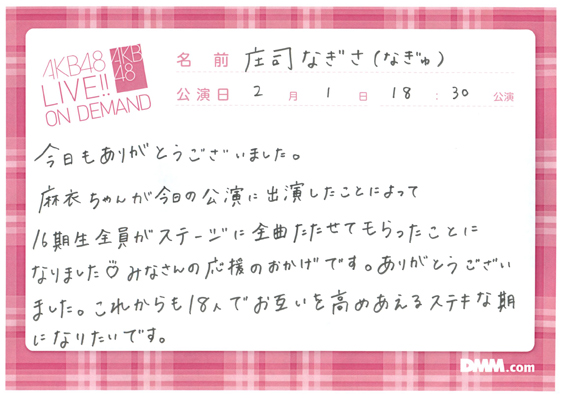 AKB48
LIVE!!
ON DEMAND
AKB
48
名前 庄司なぎさ(なぎゅ)
公演日 2月1日 18:30 公演
今日もありがとうございました。
麻衣ちゃんが今日の公演に出演したことによって
16期生全員がステージに全曲たたせてもらったことに
なりました♡みなさんの応援のおかげです。ありがとうござい
ました。これからも18人でお互いを高めあえるステキな期
になりたいです。
DMM.com